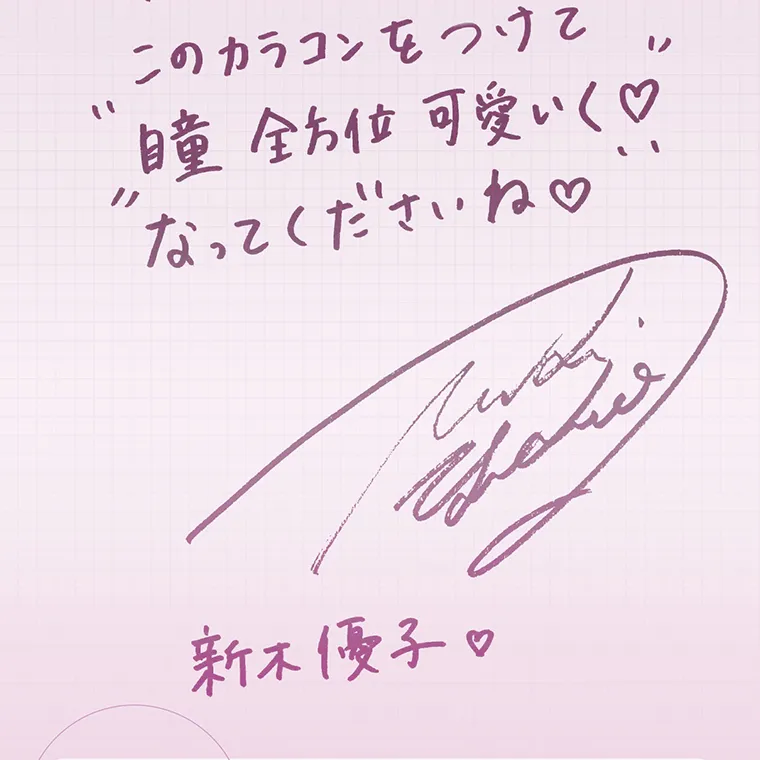 このカラコンをつけて
"瞳 全方位 可愛いく♡"
"なってくださいね♡
新木優子♡